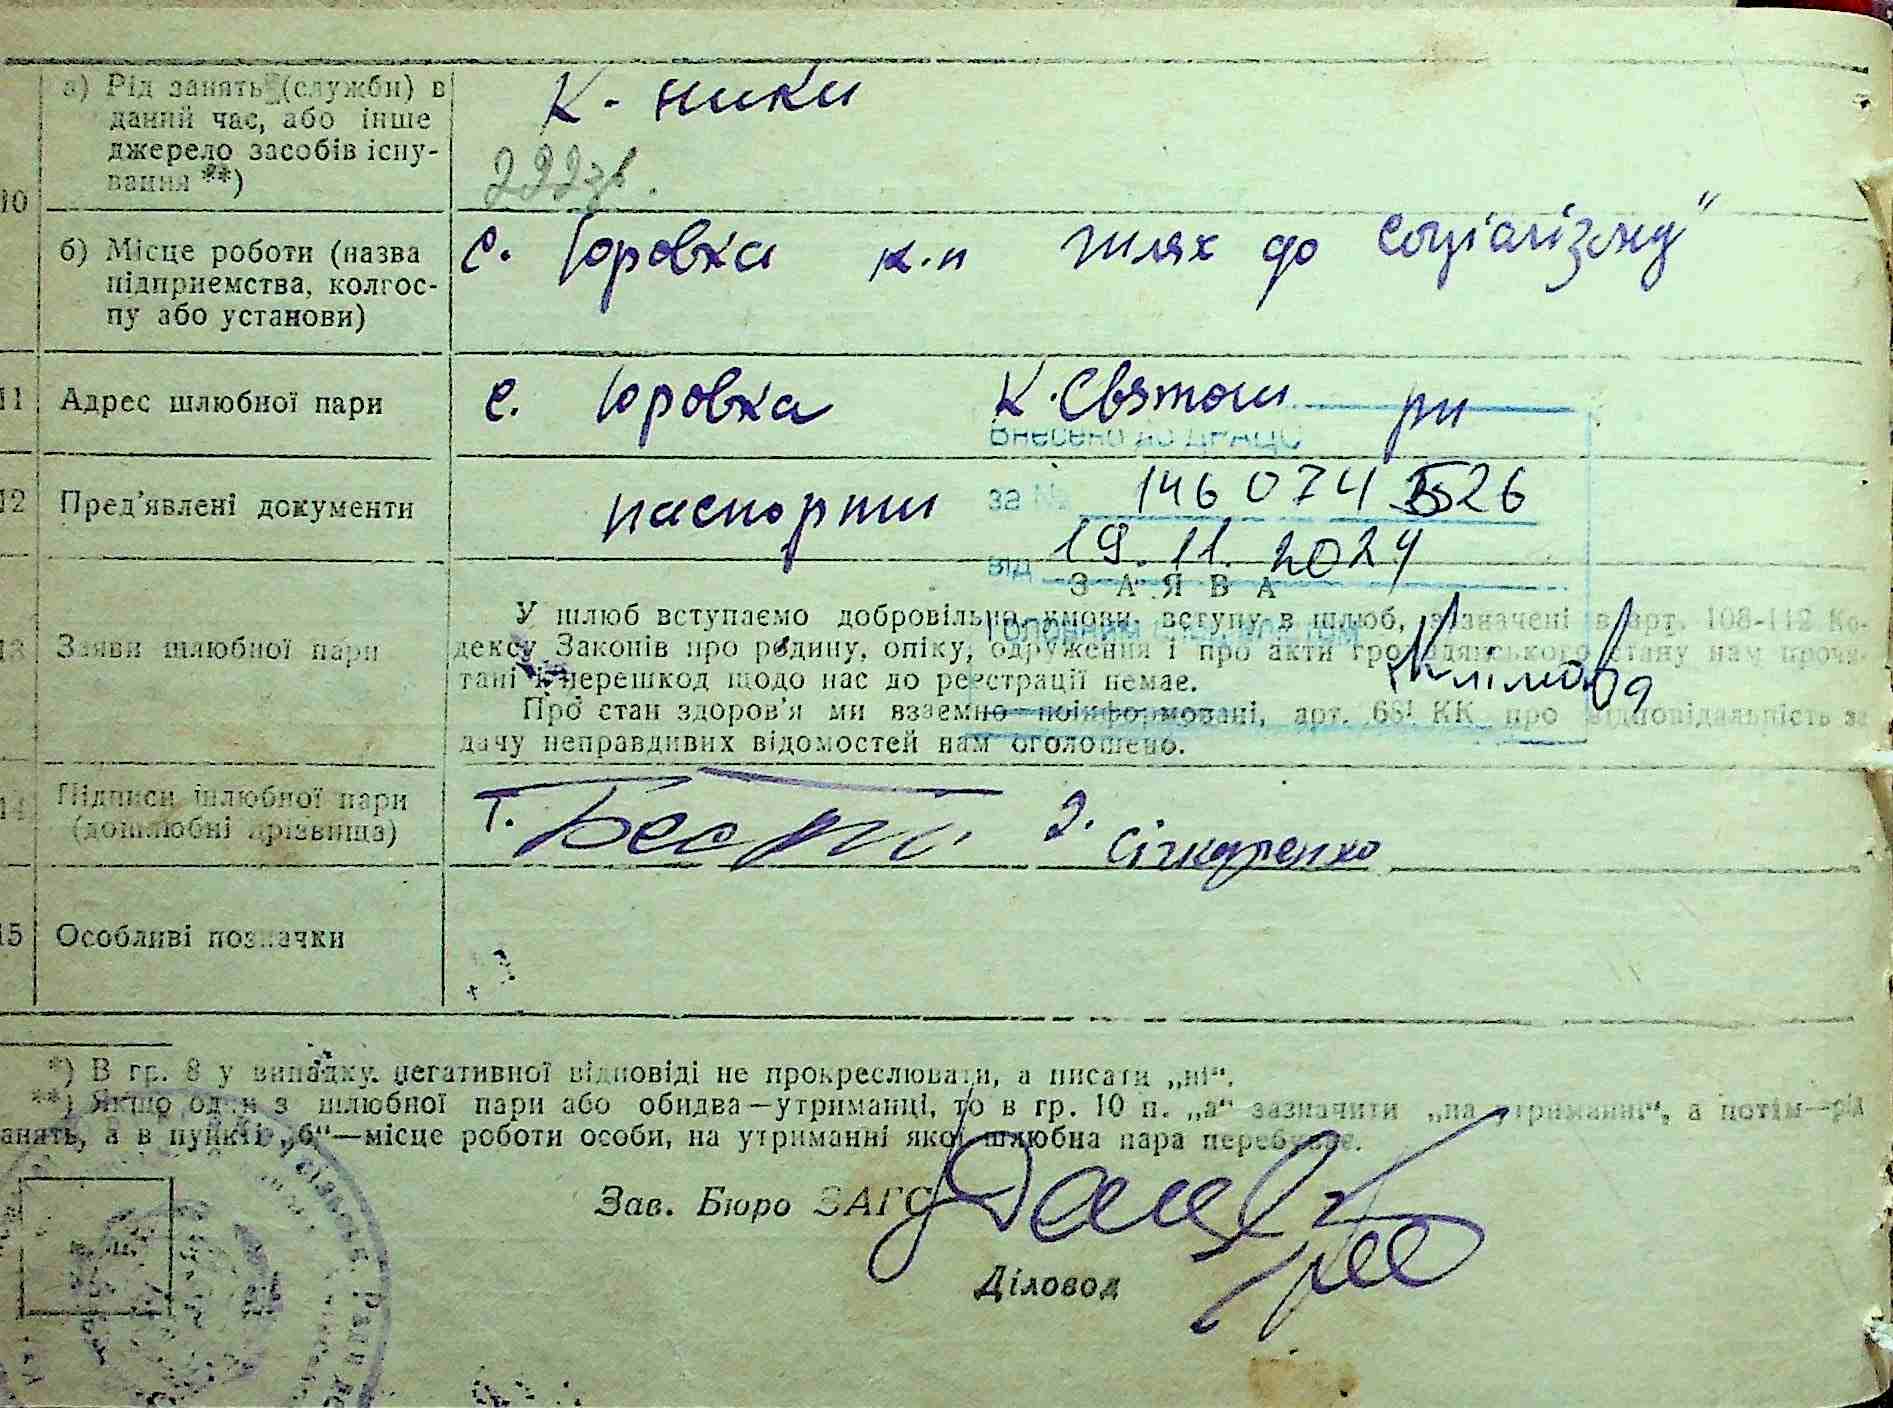 а) Рід занять (служби) в
даний час, або інше
джерело засобів існу-
вання **)
К-ники
222зв.
10
б) Місце роботи (назва
підприємства, колгос-
пу або установи)
с. Юровка к.п шлях до соціалізму"
11 Адрес шлюбної пари
с. Юровка К.Святош рн
Внесено до ДРАЦС
12 Пред'явлені документи
паспорти
за № 146 074 526
від 19.11.2024
ЗАЯВА
13 Заяви шлюбної пари
У шлюб вступаємо добровільно, умови вступу в шлюб, зазначені в арт. 108-112 Ко-
дексу Законів про родину, опіку, одруження і про акти громадянського стану нам прочи-
тані і перешкод щодо нас до реєстрації немає.
Про стан здоров'я ми взаємно поінформовані, арт. 68¹ КК про відповідальність за
дачу неправдивих відомостей нам оголошено.
Головним спеціалістом
Клімова
14 Підписи шлюбної пари
(дошлюбні прізвища)
1. 2. Січкаренко
15 Особливі позначки
*) В гр. 8 у випадку негативної відповіді не прокреслювати, а писати „ні“.
**) Якщо один з шлюбної пари або обидва—утриманці, то в гр. 10 п. „а“ зазначити „на утриманні“, а потім—рід
занять, а в пункті „б“—місце роботи особи, на утриманні якої шлюбна пара перебуває.
Зав. Бюро ЗАГС
Діловод